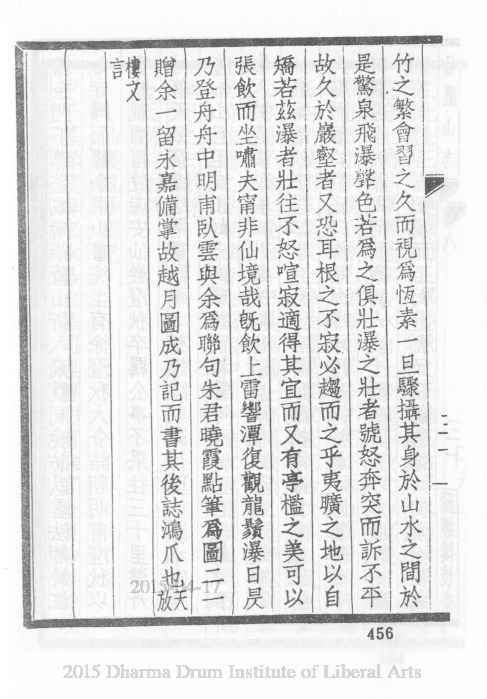 竹之繁會習之久而視爲恆素一旦驟攝其身於山水之間於
是驚泉飛瀑聲色若爲之俱壯瀑之壯者號怒奔突而訴不平
故久於巖壑者又恐耳根之不寂必趨而之乎夷曠之地以自
矯若茲瀑者壯往不怒喧寂適得其宜而又有亭檻之美可以
張飲而坐嘯夫甯非仙境哉旣飲上雷響潭復觀龍鬚瀑日昃
乃登舟舟中明甫臥雲與余爲聯句朱君曉霞點筆爲圖二一
贈余一留永嘉備掌故越月圖成乃記而書其後誌鴻爪也天放
樓文言
456
2015-04-17
2015 Dharma Drum Institute of Liberal Arts